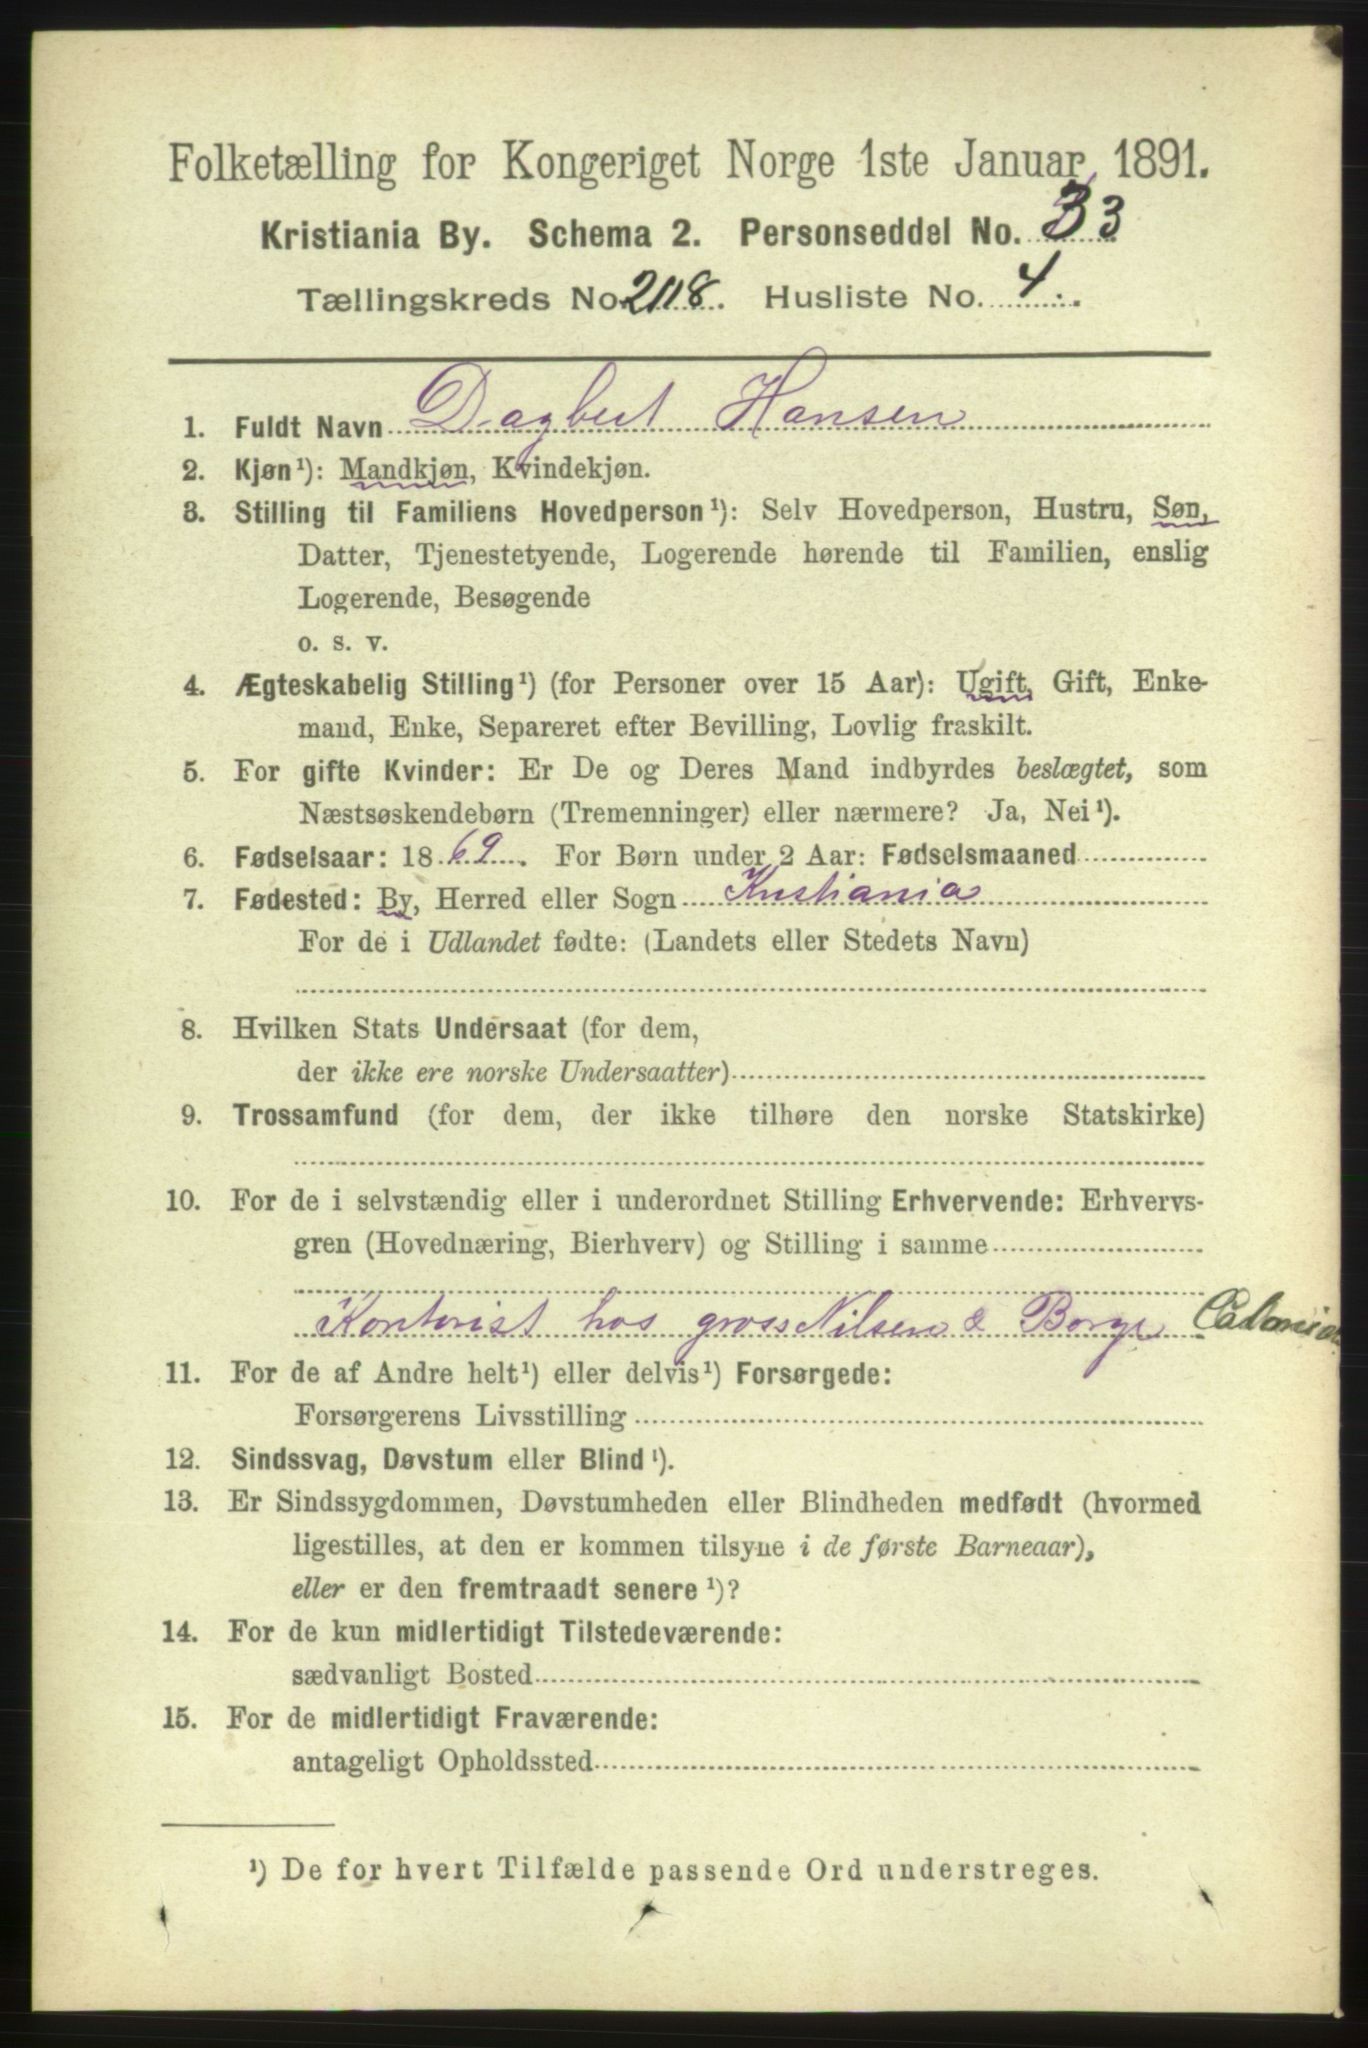 Folketælling for Kongeriget Norge 1ste Januar 1891.
Kristiania By. Schema 2. Personseddel No. 33
Tællingskreds No. 218. Husliste No. 4.
1. Fuldt Navn Dagbert Hansen
2. Kjøn¹): Mandkjøn, Kvindekjøn.
3. Stilling til Familiens Hovedperson¹): Selv Hovedperson, Hustru, Søn,
Datter, Tjenestetyende, Logerende hørende til Familien, enslig
Logerende, Besøgende
o. s. v.
4. Ægteskabelig Stilling¹) (for Personer over 15 Aar): Ugift, Gift, Enke-
mand, Enke, Separeret efter Bevilling, Lovlig fraskilt.
5. For gifte Kvinder: Er De og Deres Mand indbyrdes beslægtet, som
Næstsøskendebørn (Tremenninger) eller nærmere? Ja, Nei¹).
6. Fødselsaar: 1869. For Børn under 2 Aar: Fødselsmaaned
7. Fødested: By, Herred eller Sogn Kristiania
For de i Udlandet fødte: (Landets eller Stedets Navn)
8. Hvilken Stats Undersaat (for dem,
der ikke ere norske Undersaatter)
9. Trossamfund (for dem, der ikke tilhøre den norske Statskirke)
10. For de i selvstændig eller i underordnet Stilling Erhvervende: Erhvervs-
gren (Hovednæring, Bierhverv) og Stilling i samme
Kontorist hos gross Nilsen & Borge
11. For de af Andre helt¹) eller delvis¹) Forsørgede:
Forsørgerens Livsstilling
12. Sindssvag, Døvstum eller Blind¹).
13. Er Sindssygdommen, Døvstumheden eller Blindheden medfødt (hvormed
ligestilles, at den er kommen tilsyne i de første Barneaar),
eller er den fremtraadt senere¹)?
14. For de kun midlertidigt Tilstedeværende:
sædvanligt Bosted
15. For de midlertidigt Fraværende:
antageligt Opholdssted
¹) De for hvert Tilfælde passende Ord understreges.